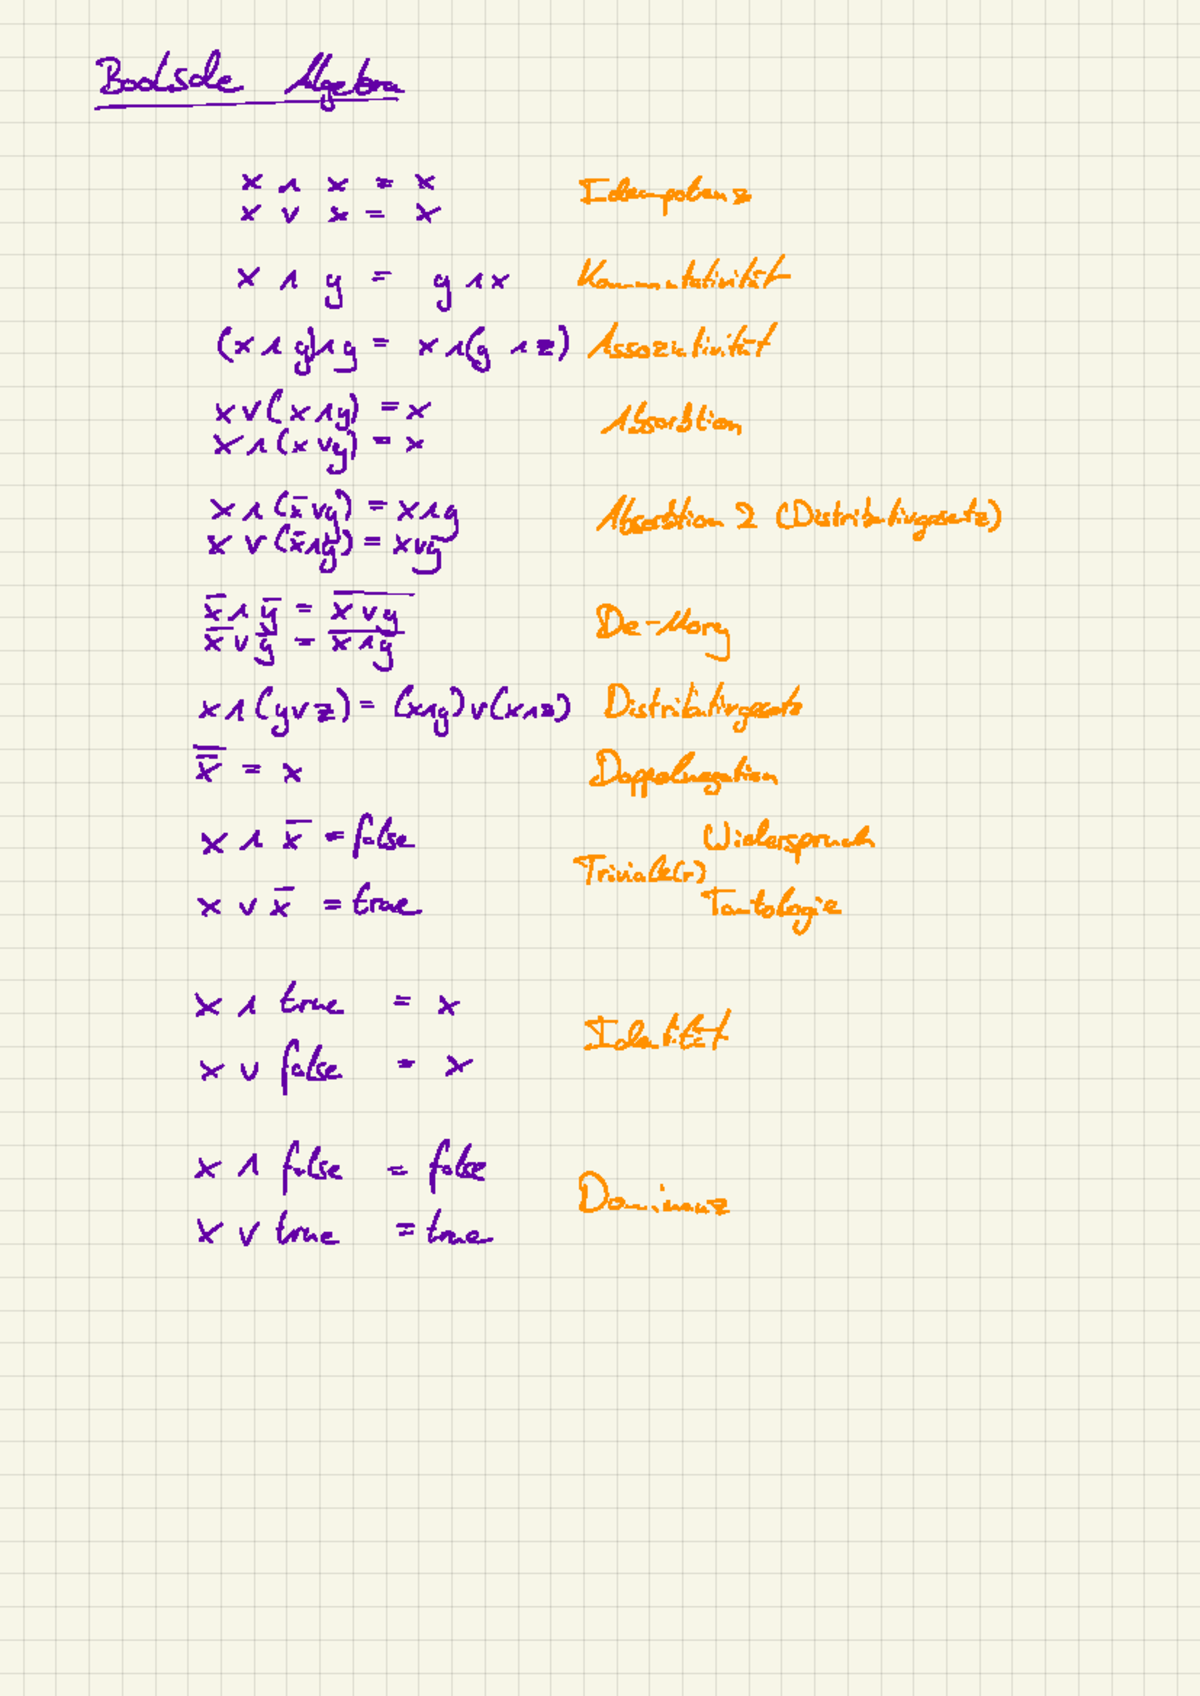 Boolsche Algebra
x ∧ x = x Idempotenz
x ∨ x = x
x ∧ y = y ∧ x Kommutativität
(x ∧ y) ∧ y = x ∧ (y ∧ z) Assozativität
x ∨ (x ∧ y) = x Absorbtion
x ∧ (x ∨ y) = x
x ∧ (x̄ ∨ y) = x ∧ y Absorbtion 2 (Distributivgesetz)
x ∨ (x̄ ∧ y) = x ∨ y
x̄ ∧ ȳ = \overline{x ∨ y} De-Morg
x̄ ∨ ȳ = \overline{x ∧ y}
x ∧ (y ∨ z) = (x ∧ y) ∨ (x ∧ z) Distributivgesetz
x̿ = x Doppelnegation
x ∧ x̄ = false Widerspruch
Triviale(r)
x ∨ x̄ = true Tautologie
x ∧ true = x Identität
x ∨ false = x
x ∧ false = false Dominanz
x ∨ true = true